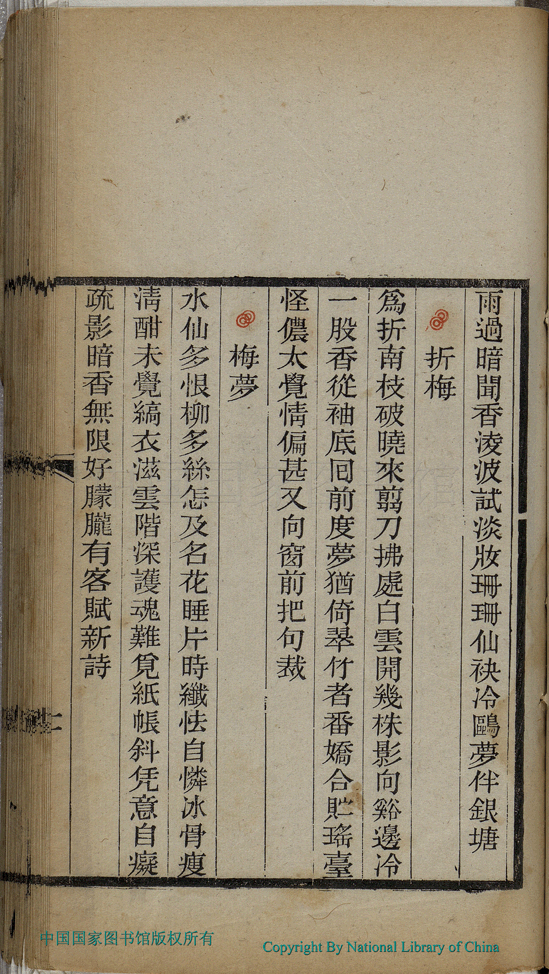 雨過暗聞香淩波試淡妝珊珊仙袂冷鷗夢伴銀塘
折梅
爲折南枝破曉來翦刀拂處白雲開幾株影向谿邊冷
一股香從袖底回前度夢猶倚翠竹者番嬌合貯瑤臺
怪儂太覺情偏甚又向窗前把句裁
梅夢
水仙多恨柳多絲怎及名花睡片時纖怯自憐冰骨瘦
淸酣未覺縞衣滋雲階深護魂難覓紙帳斜凭意自癡
疏影暗香無限好朦朧有客賦新詩
二
中国国家图书馆版权所有
Copyright By National Library of China